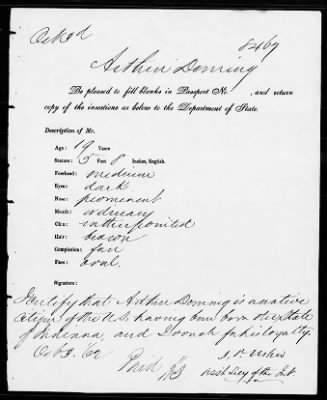 Oct 3d
8467
Arthur Doming
Be pleased to fill blanks in Passport No. , and return
copy of the insertions as below to the Department of State.
Description of Mr.
Age: 19 Years
Stature: 5 Feet 8 Inches, English.
Forehead: medium
Eyes: dark
Nose: prominent
Mouth: ordinary
Chin: rather pointed
Hair: brown
Complexion: fair
Face: oval.
Signature:
I certify that Arthur Doming is a native
citizen of the U.S. having been born in the State
of Indiana, and I vouch for his loyalty.
Oct 3. '62
Paid
Asst Secy of the Int